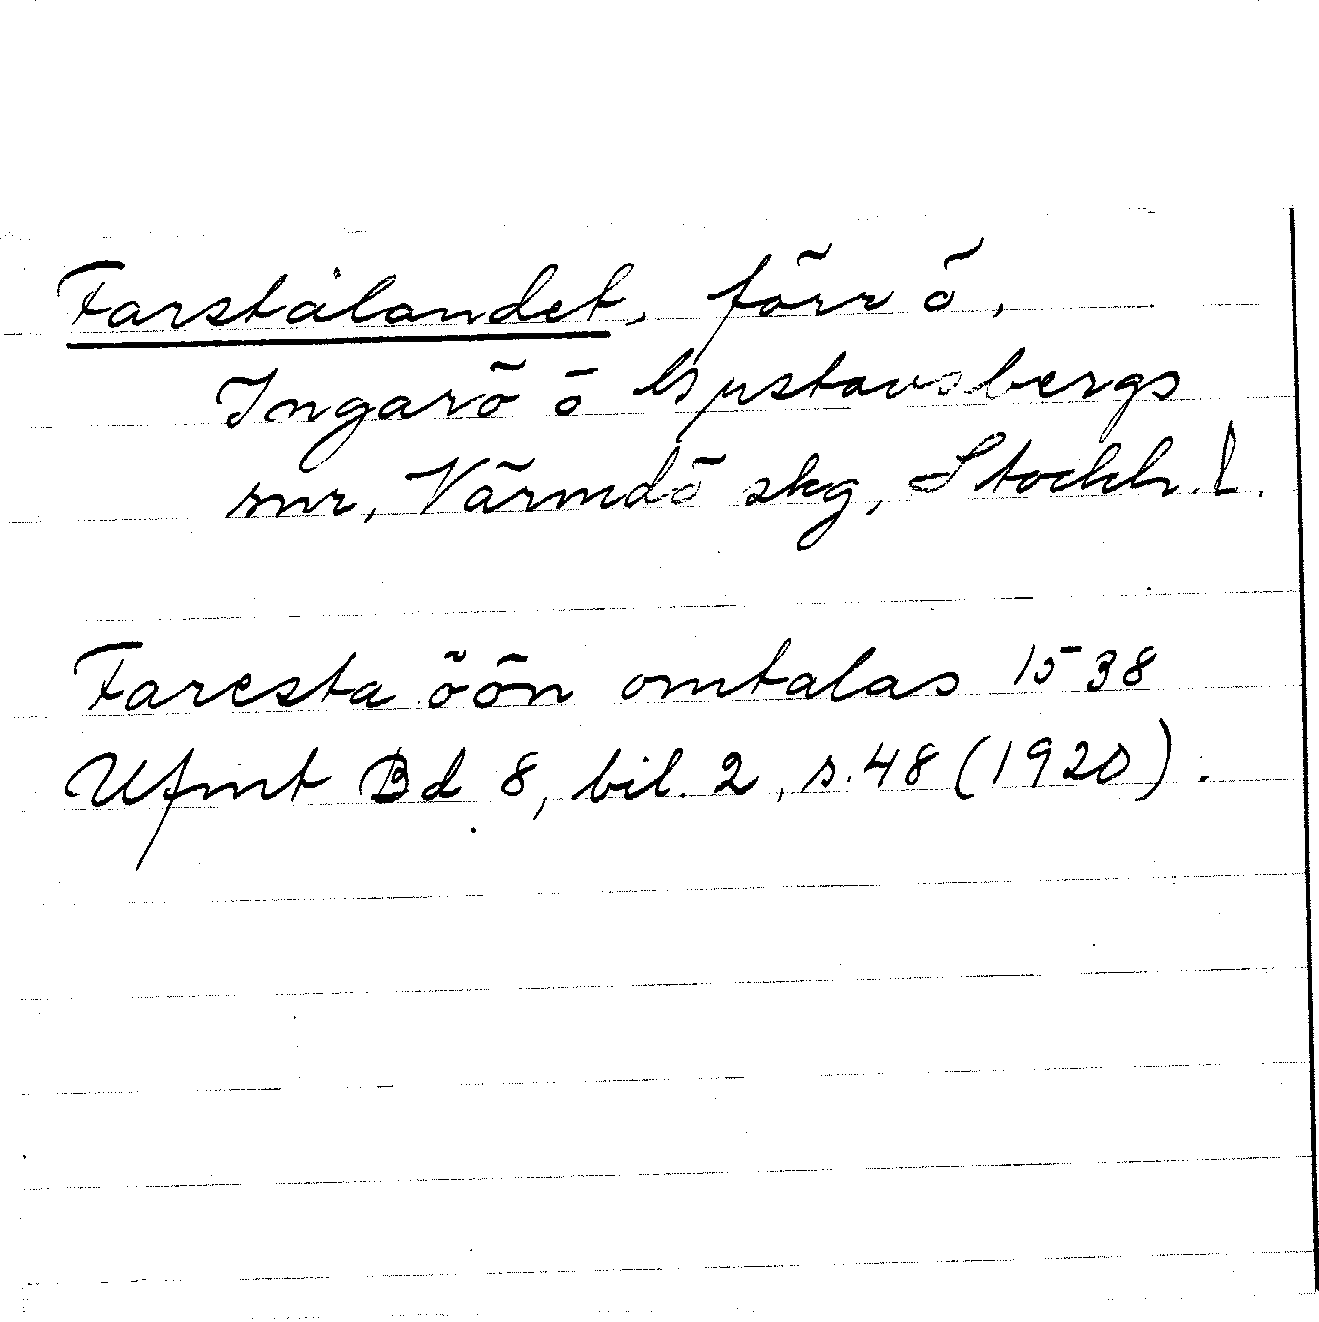 Farstalandet, förr ö,
Ingarö o Gustavsbergs
snr, Värmdö skg, Stockh. l.
Faresta öön omtalas 1538
Ufmt Bd 8, bil. 2, s. 48 (1920).